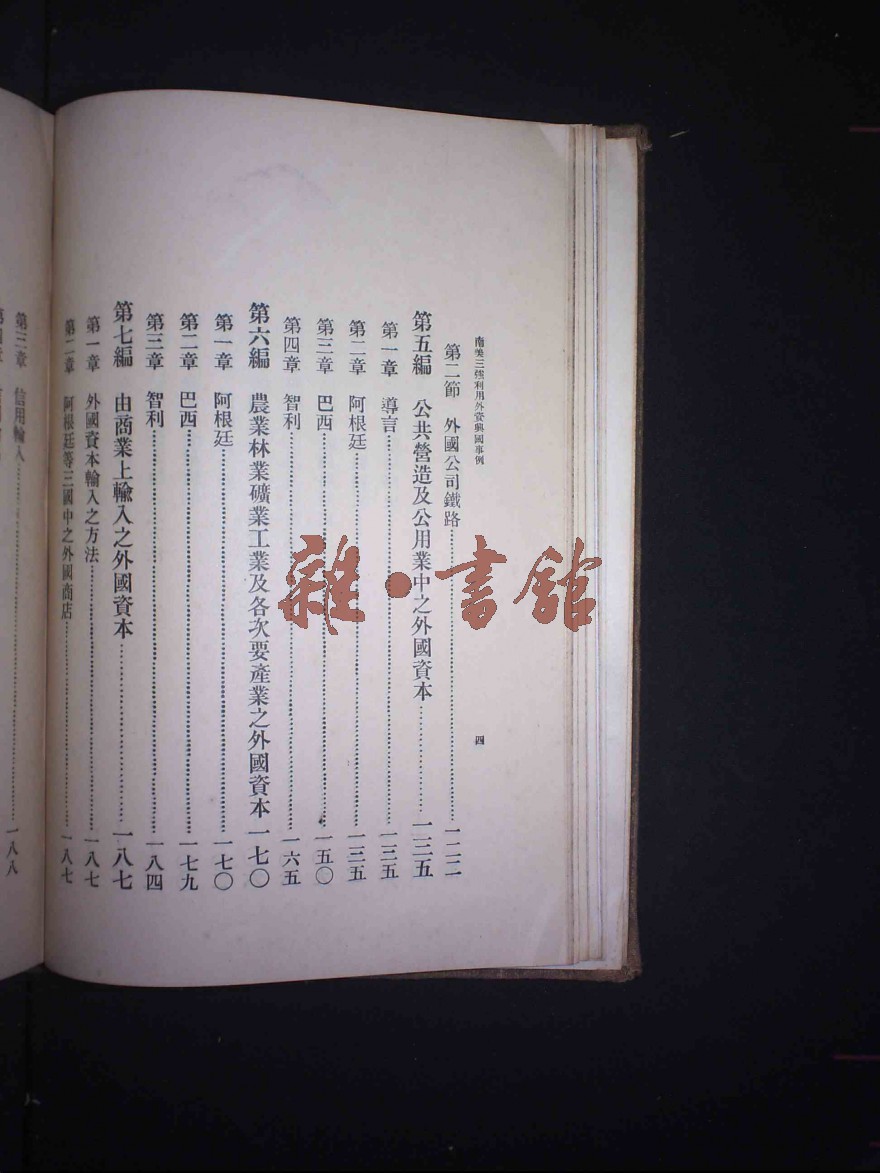 南美三強利用外資興國事例
四
第二節 外國公司鐵路……一二二
第五編 公共營造及公用業中之外國資本……一三五
第一章 導言……一三五
第二章 阿根廷……一三五
第三章 巴西……一五〇
第四章 智利……一六五
第六編 農業林業礦業工業及各次要產業之外國資本一七〇
第一章 阿根廷……一七〇
第二章 巴西……一七九
第三章 智利……一八四
第七編 由商業上輸入之外國資本……一八七
第一章 外國資本輸入之方法……一八七
第二章 阿根廷等三國中之外國商店……一八七
第三章 信用輸入……一八八
雜·書館